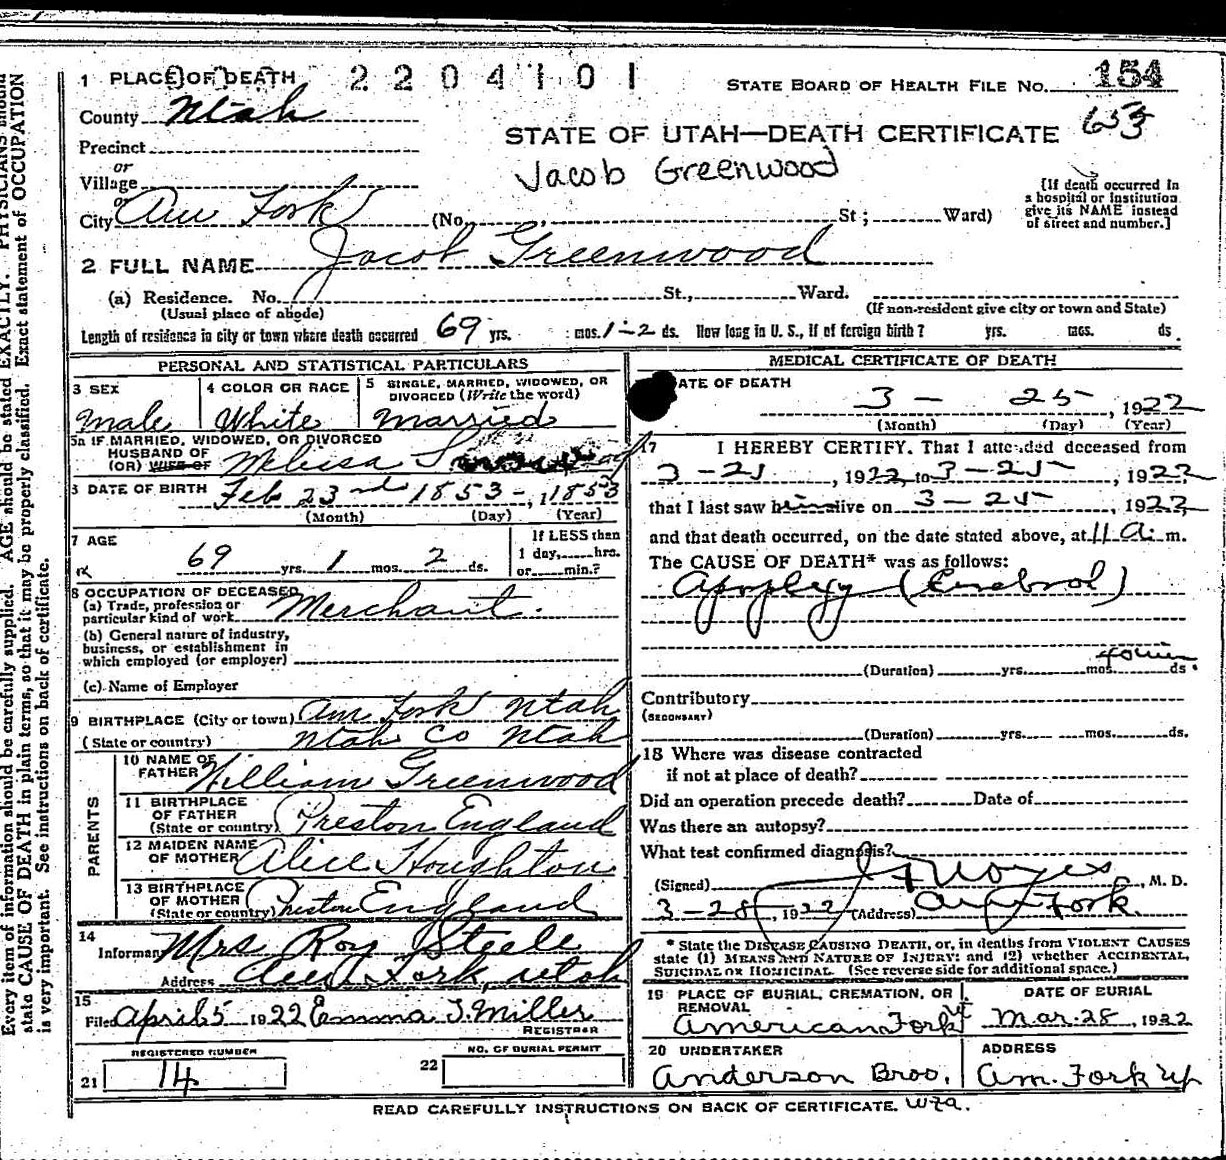 Every item of information should be carefully supplied. AGE should be stated EXACTLY. PHYSICIANS should
state CAUSE OF DEATH in plain terms, so that it may be properly classified. Exact statement of OCCUPATION
is very important. See instructions on back of certificate.
2204101
1 PLACE OF DEATH
STATE BOARD OF HEALTH FILE No. 154
County Utah
653
STATE OF UTAH—DEATH CERTIFICATE
Precinct
or
Village
Jacob Greenwood
or
City Am Fork (No. St; Ward)
[If death occurred in
a hospital or institution
give its NAME instead
of street and number.]
2 FULL NAME Jacob Greenwood
(a) Residence. No. St., Ward.
(Usual place of abode) (If non-resident give city or town and State)
Length of residence in city or town where death occurred 69 yrs. mos. 1-2 ds. How long in U. S., if of foreign birth? yrs. mos. ds.
PERSONAL AND STATISTICAL PARTICULARS
3 SEX 4 COLOR OR RACE 5 SINGLE, MARRIED, WIDOWED, OR DIVORCED (Write the word)
Male White Married
5a IF MARRIED, WIDOWED, OR DIVORCED
HUSBAND OF
(OR) WIFE OF Melissa
6 DATE OF BIRTH Feb 23rd 1853-, 1853
(Month) (Day) (Year)
7 AGE
69 yrs. 1 mos. 2 ds.
If LESS than
1 day, hrs.
or min.?
8 OCCUPATION OF DECEASED
(a) Trade, profession or
particular kind of work Merchant.
(b) General nature of industry,
business, or establishment in
which employed (or employer)
(c) Name of Employer
9 BIRTHPLACE (City or town) Am Fork Utah
(State or country) Utah Co Utah
PARENTS
10 NAME OF
FATHER William Greenwood
11 BIRTHPLACE
OF FATHER
(State or country) Preston England
12 MAIDEN NAME
OF MOTHER Alice Houghton
13 BIRTHPLACE
OF MOTHER
(State or country) Preston England
14
Informant Mrs Roy Steele
Address Am Fork, Utah
15
Filed April 5 1922 Emma J. Miller
REGISTRAR
REGISTERED NUMBER
21 14
NO. OF BURIAL PERMIT
22
MEDICAL CERTIFICATE OF DEATH
DATE OF DEATH
3 - 25, 1922
(Month) (Day) (Year)
17 I HEREBY CERTIFY, That I attended deceased from
3-21, 1922, to 3-25, 1922,
that I last saw him alive on 3-25 1922
and that death occurred, on the date stated above, at 11 a. m.
The CAUSE OF DEATH* was as follows:
Apoplexy (Cerebral)
(Duration) yrs. mos. ds.
Contributory
(SECONDARY)
(Duration) yrs. mos. ds.
18 Where was disease contracted
if not at place of death?
Did an operation precede death? Date of
Was there an autopsy?
What test confirmed diagnosis?
(Signed) Noyes, M. D.
3-28, 1922 (Address) Am Fork.
* State the DISEASE CAUSING DEATH, or, in deaths from VIOLENT CAUSES
state (1) MEANS AND NATURE OF INJURY; and (2) whether ACCIDENTAL,
SUICIDAL or HOMICIDAL. (See reverse side for additional space.)
19 PLACE OF BURIAL, CREMATION, OR
REMOVAL
American Fork
DATE OF BURIAL
Mar. 28, 1922
20 UNDERTAKER
Anderson Bros.
ADDRESS
Am. Fork Ut
READ CAREFULLY INSTRUCTIONS ON BACK OF CERTIFICATE.